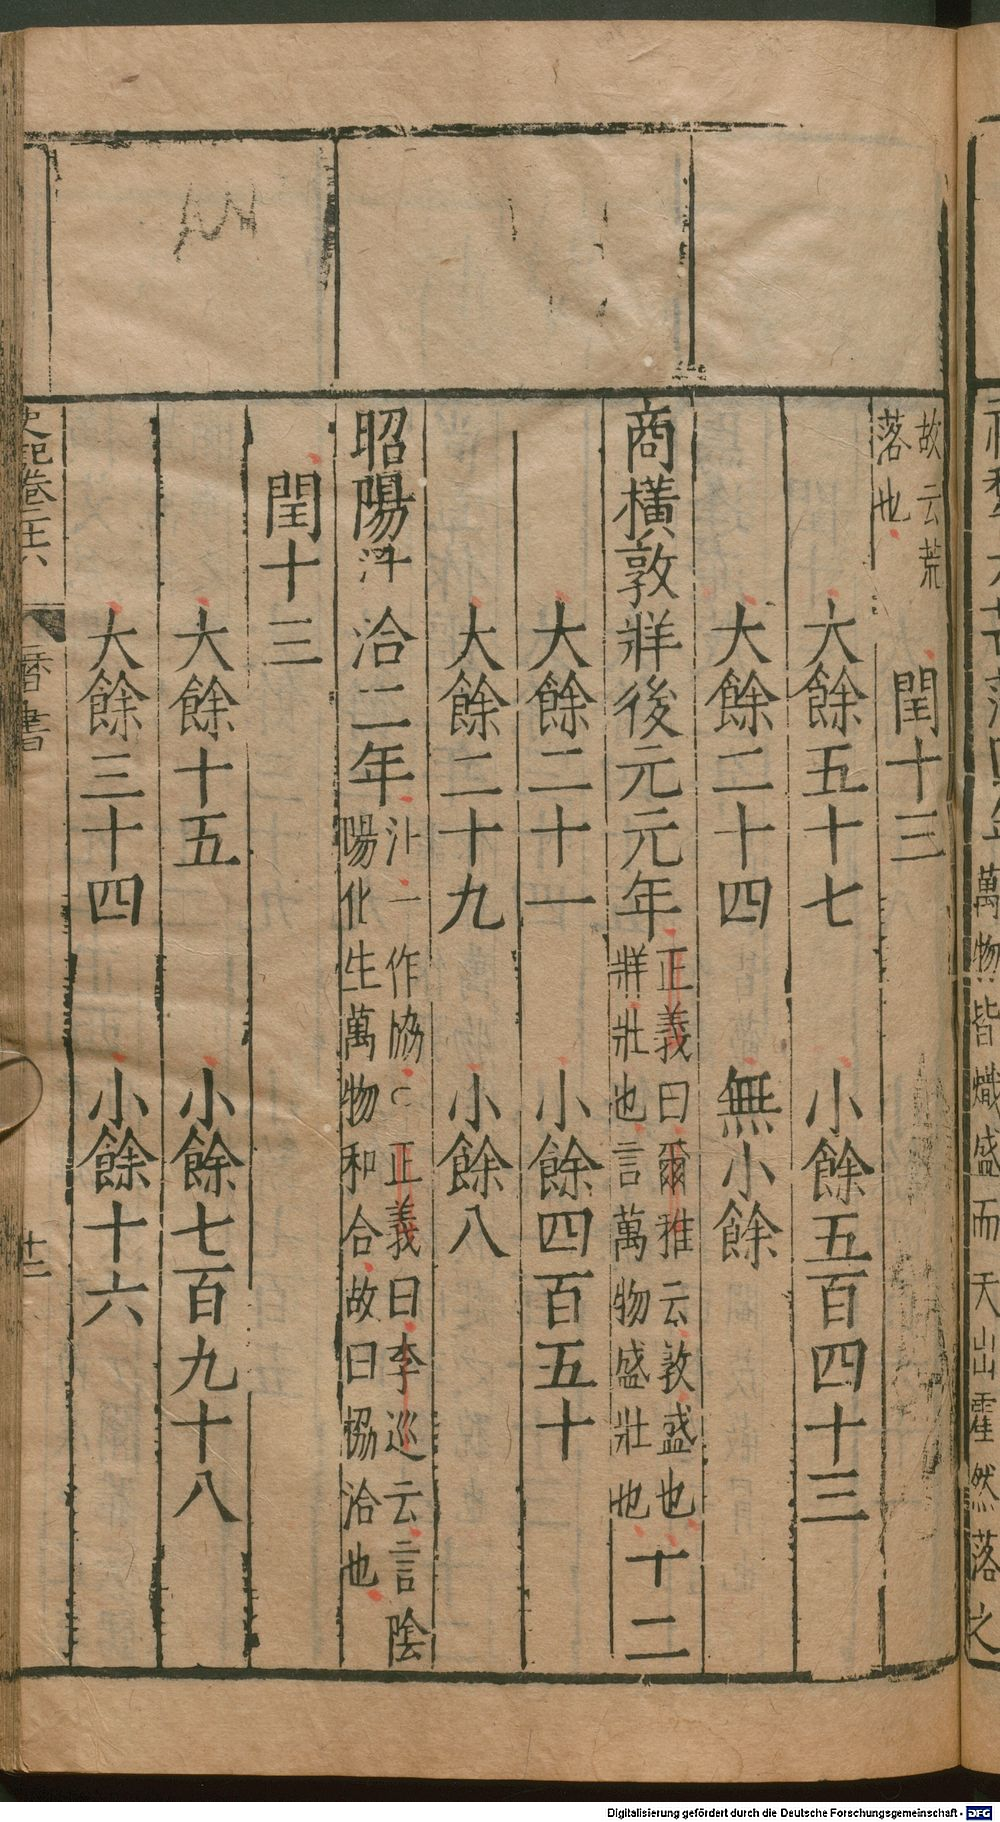 祝犂大荒落四年萬物皆熾盛而大出霍然落之
故云荒
落也
閏十三
大餘五十七 小餘五百四十三
大餘二十四 無小餘
商橫敦牂後元元年正義曰爾雅云敦盛也
牂壯也言萬物盛壯也 十二
大餘二十一 小餘四百五十
大餘二十九 小餘八
昭陽汁洽二年汁一作協○正義曰李巡云言陰
陽化生萬物和合故曰協洽也
閏十三
大餘十五 小餘七百九十八
大餘三十四 小餘十六
史記卷二十六 曆書 廿二
Digitalisierung gefördert durch die Deutsche Forschungsgemeinschaft - DFG